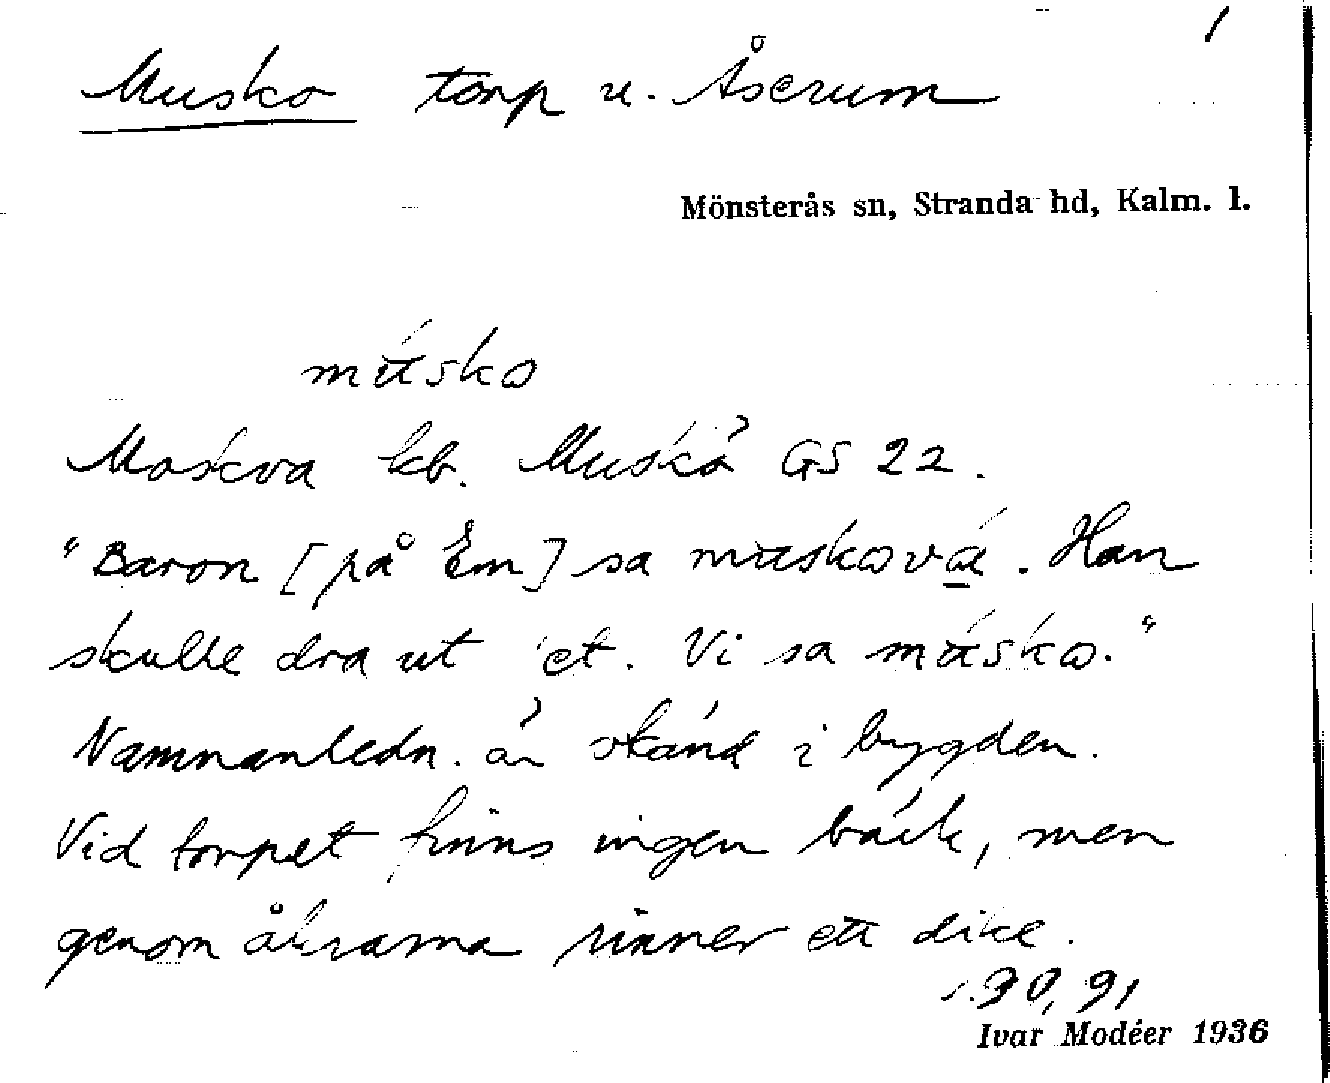 /
Musko torp u. Åserum
Mönsterås sn, Stranda hd, Kalm. l.
músko
Moskva kb. Muskå GS 22.
"Baron [på Em] sa musková. Han
skulle dra ut 'et. Vi sa músko."
Namnanledn. är okänd i bygden.
Vid torpet finns ingen bäck, men
genom åkrarna rinner ett dike.
s. 90, 91
Ivar Modéer 1936